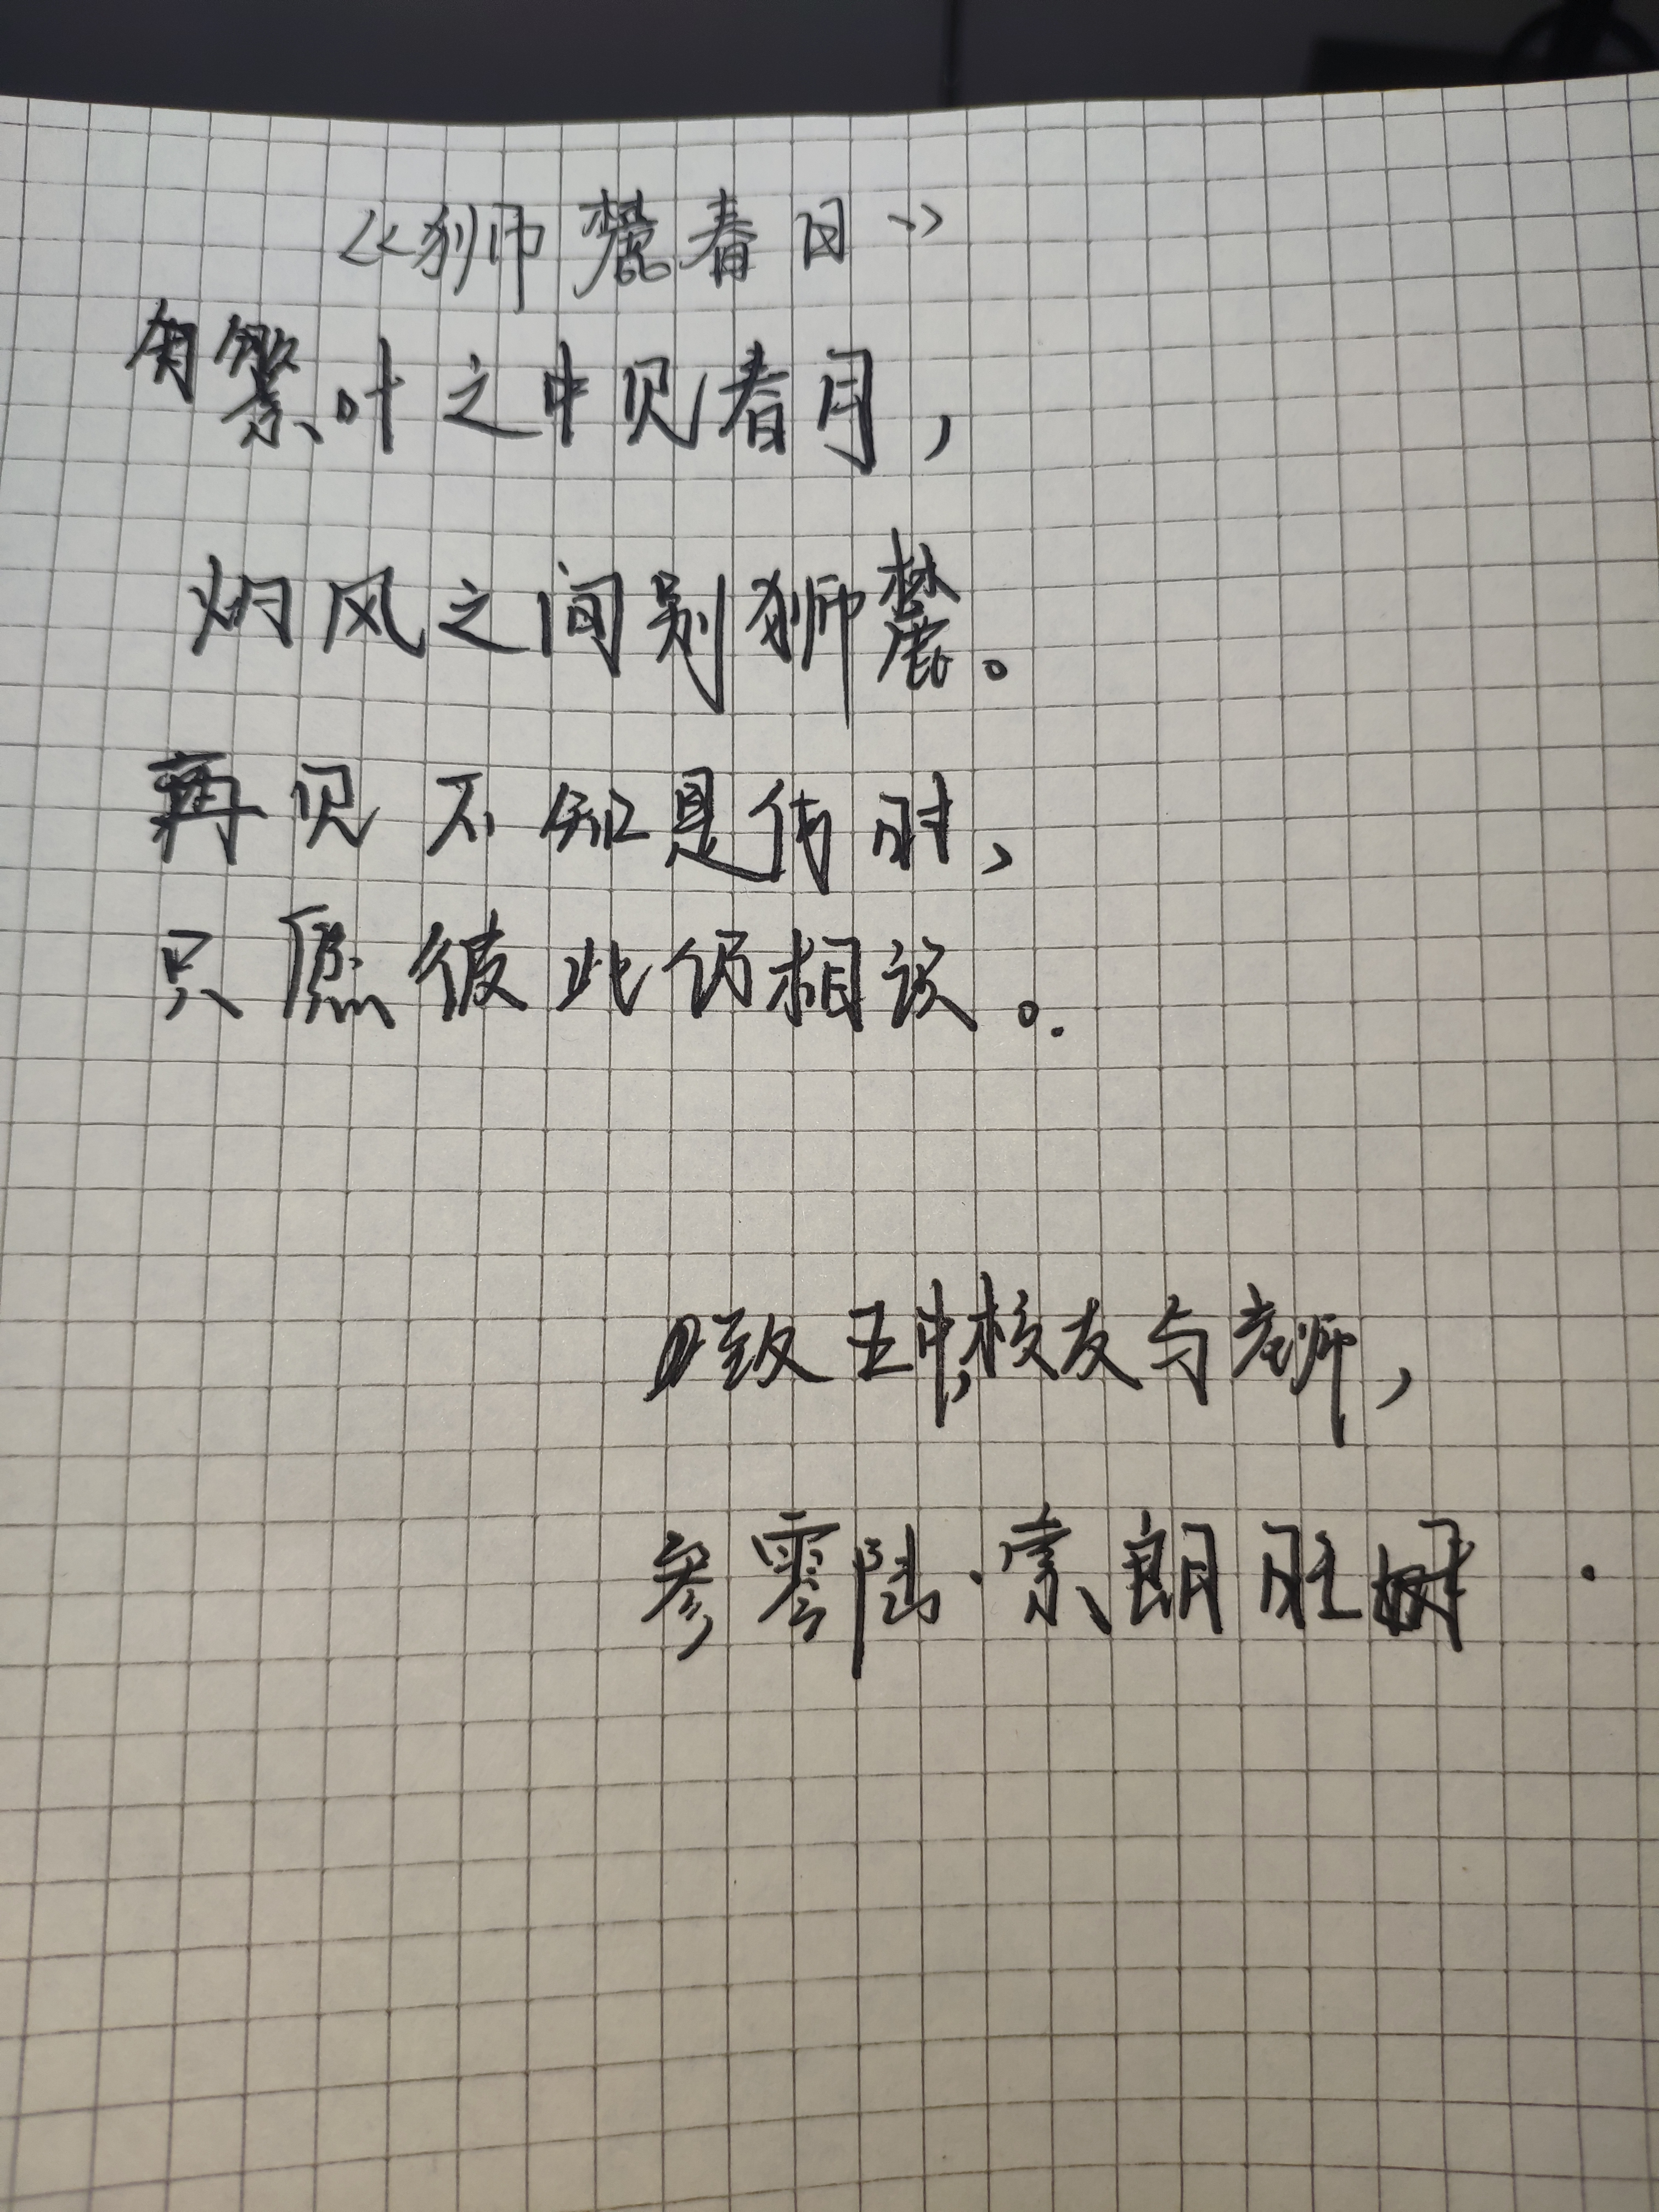 《狮麓春日》
有繁叶之中见春月，
灼风之间别狮麓。
再见不知是何时，
只愿彼此仍相识。
致五中校友与老师，
参零陆·索朗旺树